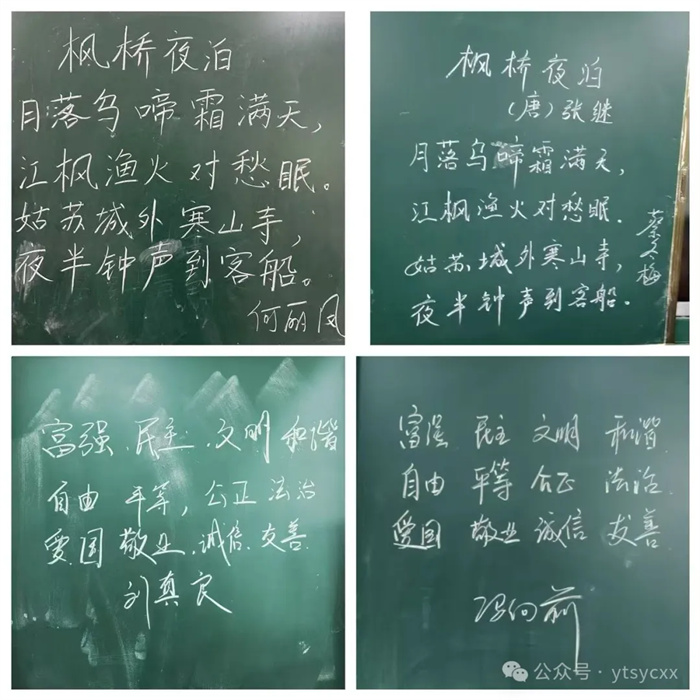 枫桥夜泊
月落乌啼霜满天,
江枫渔火对愁眠。
姑苏城外寒山寺,
夜半钟声到客船。
何丽凤
枫桥夜泊
(唐)张继
月落乌啼霜满天,
江枫渔火对愁眠.
姑苏城外寒山寺,
夜半钟声到客船.
蔡冬梅
富强、民主、文明 和谐
自由 平等, 公正 法治
爱国 敬业、诚信、友善.
刘真良
富强 民主 文明 和谐
自由 平等 公正 法治
爱国 敬业 诚信 友善
冯向前
公众号 · ytsycxx